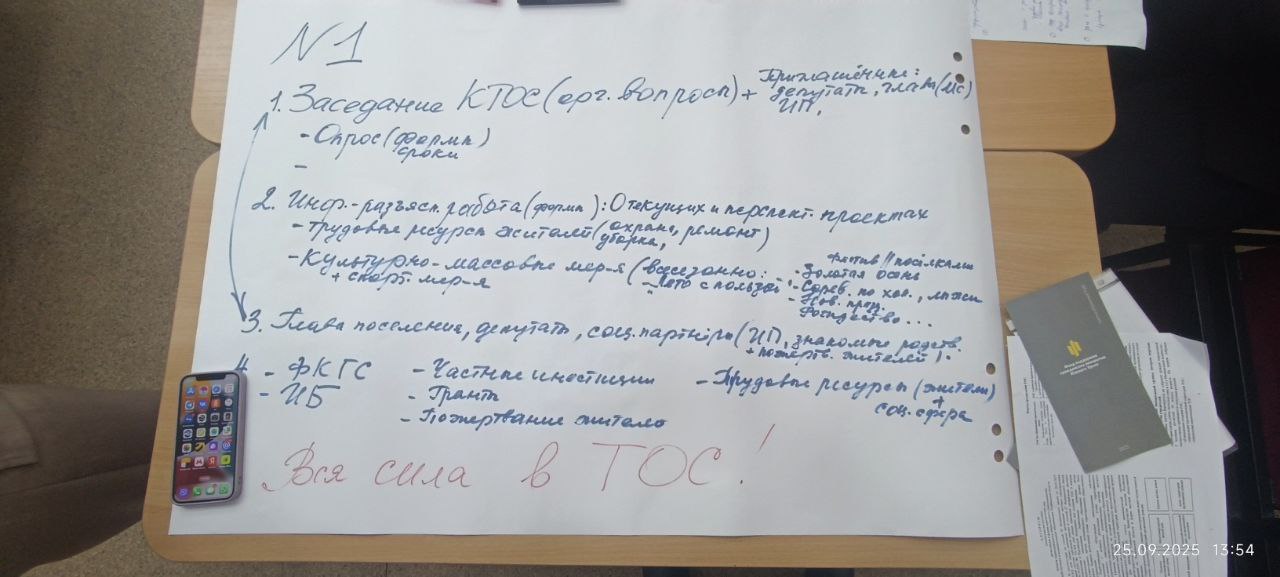 N1
1. Заседание КТОС (орг. вопросы) + Приглашённые:
депутаты, главы (МС)
ИП.
- Опрос (формы)
сроки
-
2. Инф.-разъясн. работа (формы): О текущих и перспект. проектах
- трудовые ресурсы жителей (охрана, ремонт)
уборка,
- Культурно-массовые мер-я (всесезонно:
+ спорт. мер-я
- Лето с пользой
- Золотая осень
- Сореб. по хок., лыжи
- Нов. празд.
Рождество...
3. Глава поселение, депутаты, соц. партнёры (ИП, знакомые родств.
+ пожертв. жителей).
4. - ФКГС
- ИБ
- Частные инвестиции
- Гранты
- Пожертвание жителю
- Трудовые ресурсы (жители)
+
соц. сфера
Вся сила в ТОС!
25.09.2025 13:54